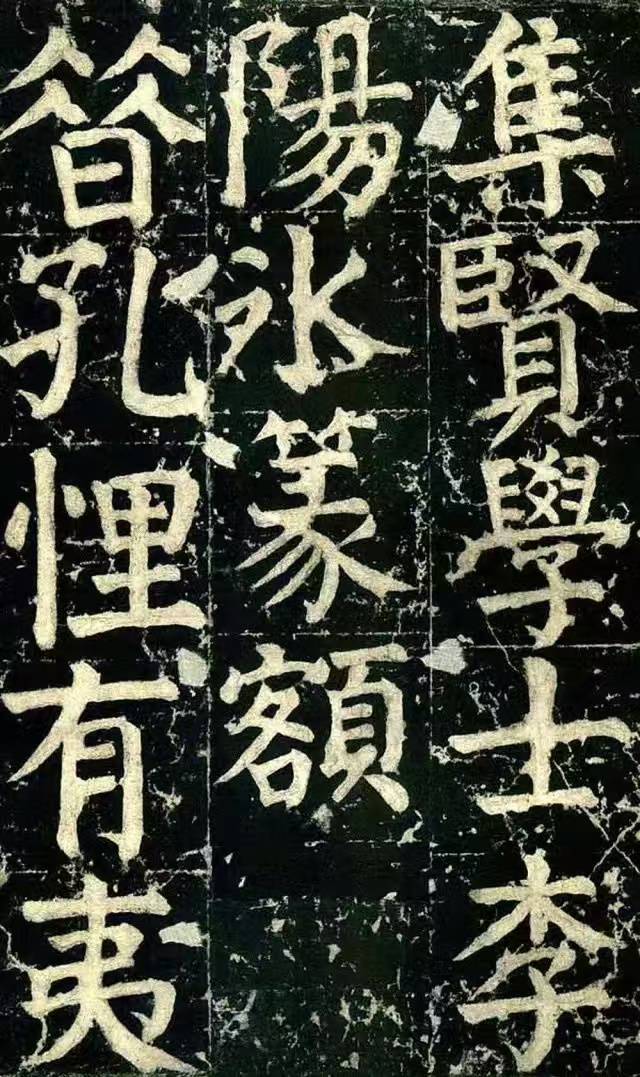 集賢學士李
陽冰篆額
㫺孔悝有夷